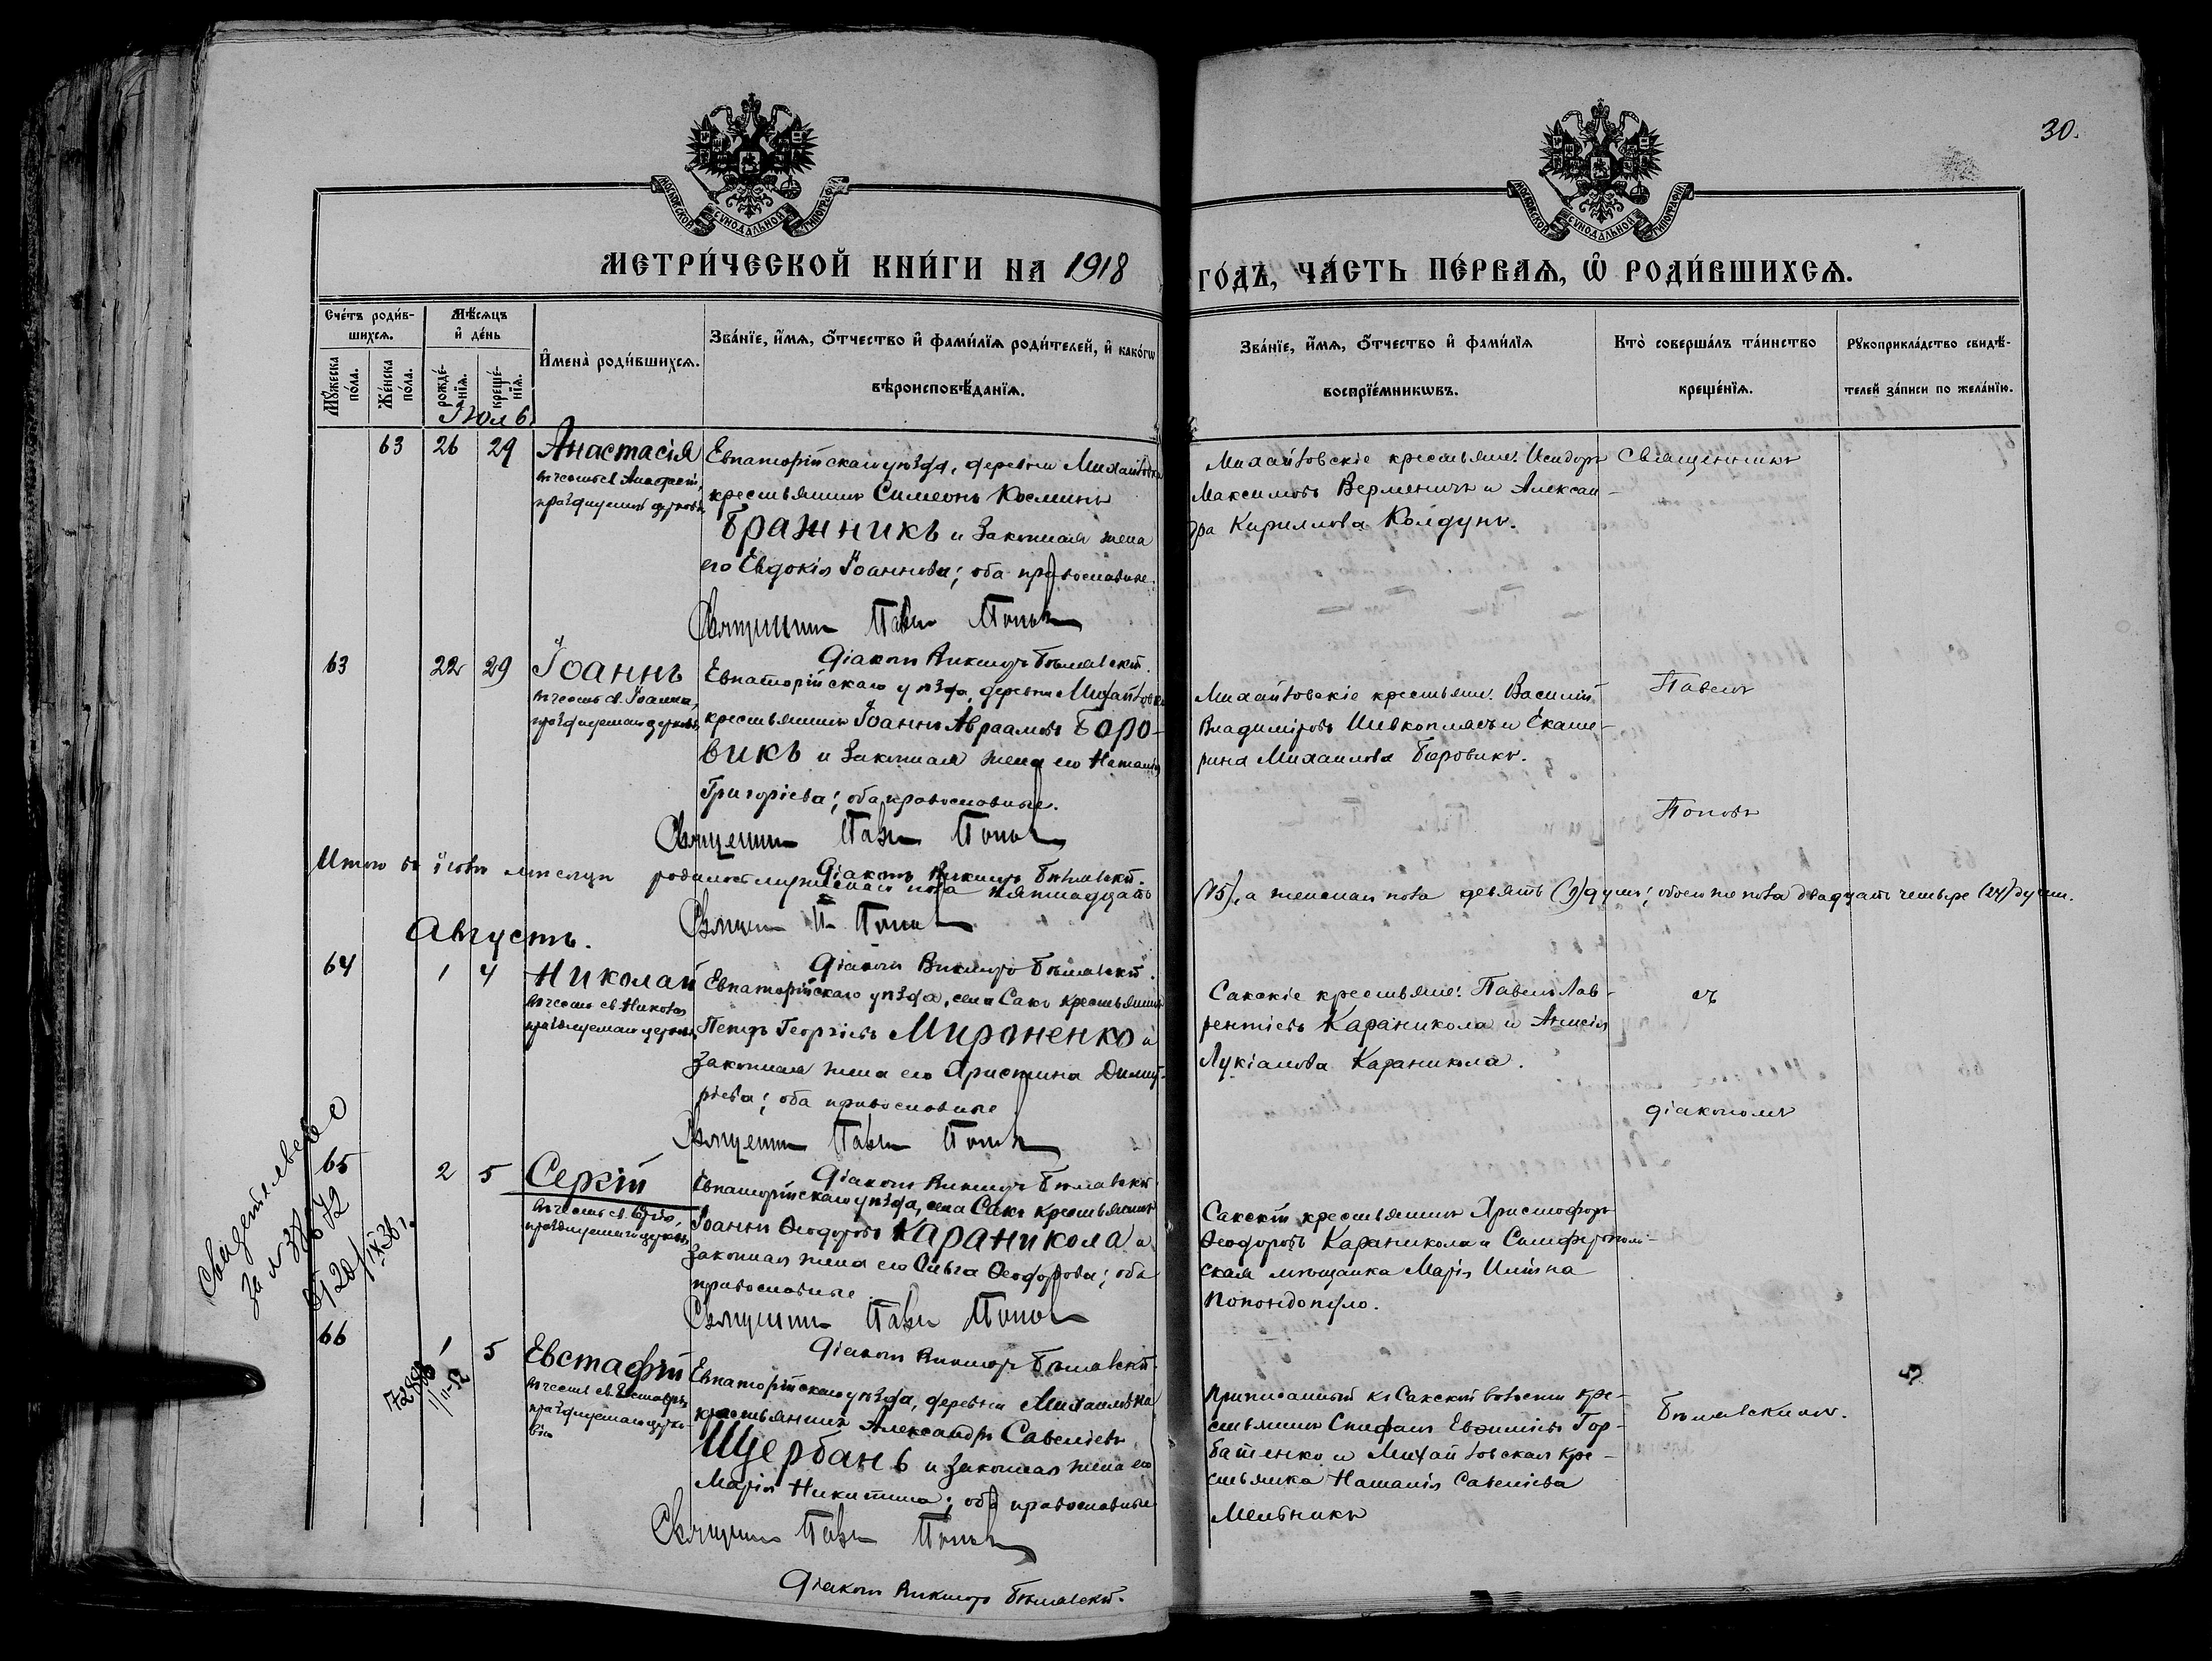 30.
МОСКОВСКОЙ СѴНОДАЛЬНОЙ ТИПОГРАФІИ
МОСКОВСКОЙ СѴНОДАЛЬНОЙ ТИПОГРАФІИ
МЕТРИ́ЧЕСКОЙ КНИ́ГИ НА 1918
ГО́ДЪ, ЧА́СТЬ ПЕ́РВАѦ, Ѡ҆ РОДИ́ВШИХСѦ.
Сче́тъ роди́в-
шихсѧ.
Мꙋ́жеска
по́ла.
Же́нска
по́ла.
Мѣ́сѧцъ
и҆ де́нь
рожде́-
нїѧ.
креще́-
нїѧ.
И҆мена̀ роди́вшихсѧ.
Зва́нїе, и҆́мѧ, ѻ҆́тчество и҆ фами́лїѧ роди́телей, и҆ како́гѡ
вѣроисповѣ́данїѧ.
Зва́нїе, и҆́мѧ, ѻ҆́тчество и҆ фами́лїѧ
воспрїе́мникѡвъ.
Кто̀ соверша́лъ та́инство
креще́нїѧ.
Рꙋкоприкла́дство свидѣ́-
телей за́писи по жела́нїю.
Іюль
63 26 29 Анастасія
Въ честь св. Анастасіи,
празднуемой церковью
Евпаторійскаго уѣзда, деревни Михайловки
крестьянинъ Симеонъ Косминъ
Бражникъ и законная жена
его Евдокія Іоаннова; оба православные.
Священникъ Павелъ Поповъ
Діаконъ Викторъ Бѣлявскій.
Михайловскіе крестьяне: Исидоръ
Максимовъ Верменичъ и Алексан-
дра Кириллова Колдунъ.
Священникъ
63 22 29 Іоаннъ
Въ честь св. Іоанна,
празднуемаго церковью
Евпаторійскаго уѣзда, деревни Михайловки
крестьянинъ Іоаннъ Авраамовъ Боро-
викъ и законная жена его Наталія
Григоріева; оба православные.
Священникъ Павелъ Поповъ
Діаконъ Викторъ Бѣлявскій.
Михайловскіе крестьяне: Василій
Владиміровъ Шевкоплясъ и Екате-
рина Михаилова Боровикъ.
Павелъ
Поповъ
Итого въ іюлѣ мѣсяцѣ родилось мужескаго пола пятнадцать
(15), а женскаго пола девять (9) душъ; обоего же пола двадцать четыре (24) души.
Священникъ П. Поповъ
Діаконъ Викторъ Бѣлявскій.
Августъ.
64 1 4 Николай
Въ честь св. Николая
празднуемаго церковью
Евпаторійскаго уѣзда, села Саки крестьянинъ
Петръ Георгіевъ Мироненко и
законная жена его Христина Димит-
ріева; оба православные
Священникъ Павелъ Поповъ
Діаконъ Викторъ Бѣлявскій
Сакскіе крестьяне: Павелъ Лав-
рентіевъ Караникола и Анисія
Лукіанова Караникола.
съ
діакономъ
65 2 5 Сергій
Въ честь св. Сергія,
празднуемаго церковью
Евпаторійскаго уѣзда, села Саки крестьянинъ
Іоаннъ Ѳеодоровъ Караникола и
законная жена его Ольга Ѳеодорова; оба
православные
Священникъ Павелъ Поповъ
Діаконъ Викторъ Бѣлявскій
Сакскій крестьянинъ Христофоръ
Ѳеодоровъ Караникола и Симферополь-
ская мѣщанка Марія Ильина
Попондопуло.
66 1 5 Евстафій
Въ честь св. Евстафія,
празднуемаго церко-
вью
Евпаторійскаго уѣзда, деревни Михайловка
крестьянинъ Александръ Савеліевъ
Щербань и законная жена его
Марія Никитина; оба православные
Священникъ Павелъ Поповъ
Діаконъ Викторъ Бѣлявскій.
Приписанный къ Сакской волости кре-
стьянинъ Епифанъ Евѳиміевъ Гор-
батенко и Михайловская кре-
стьянка Наталія Савеліева
Мельникъ
Бѣлявскимъ.
Свидетельство
за №